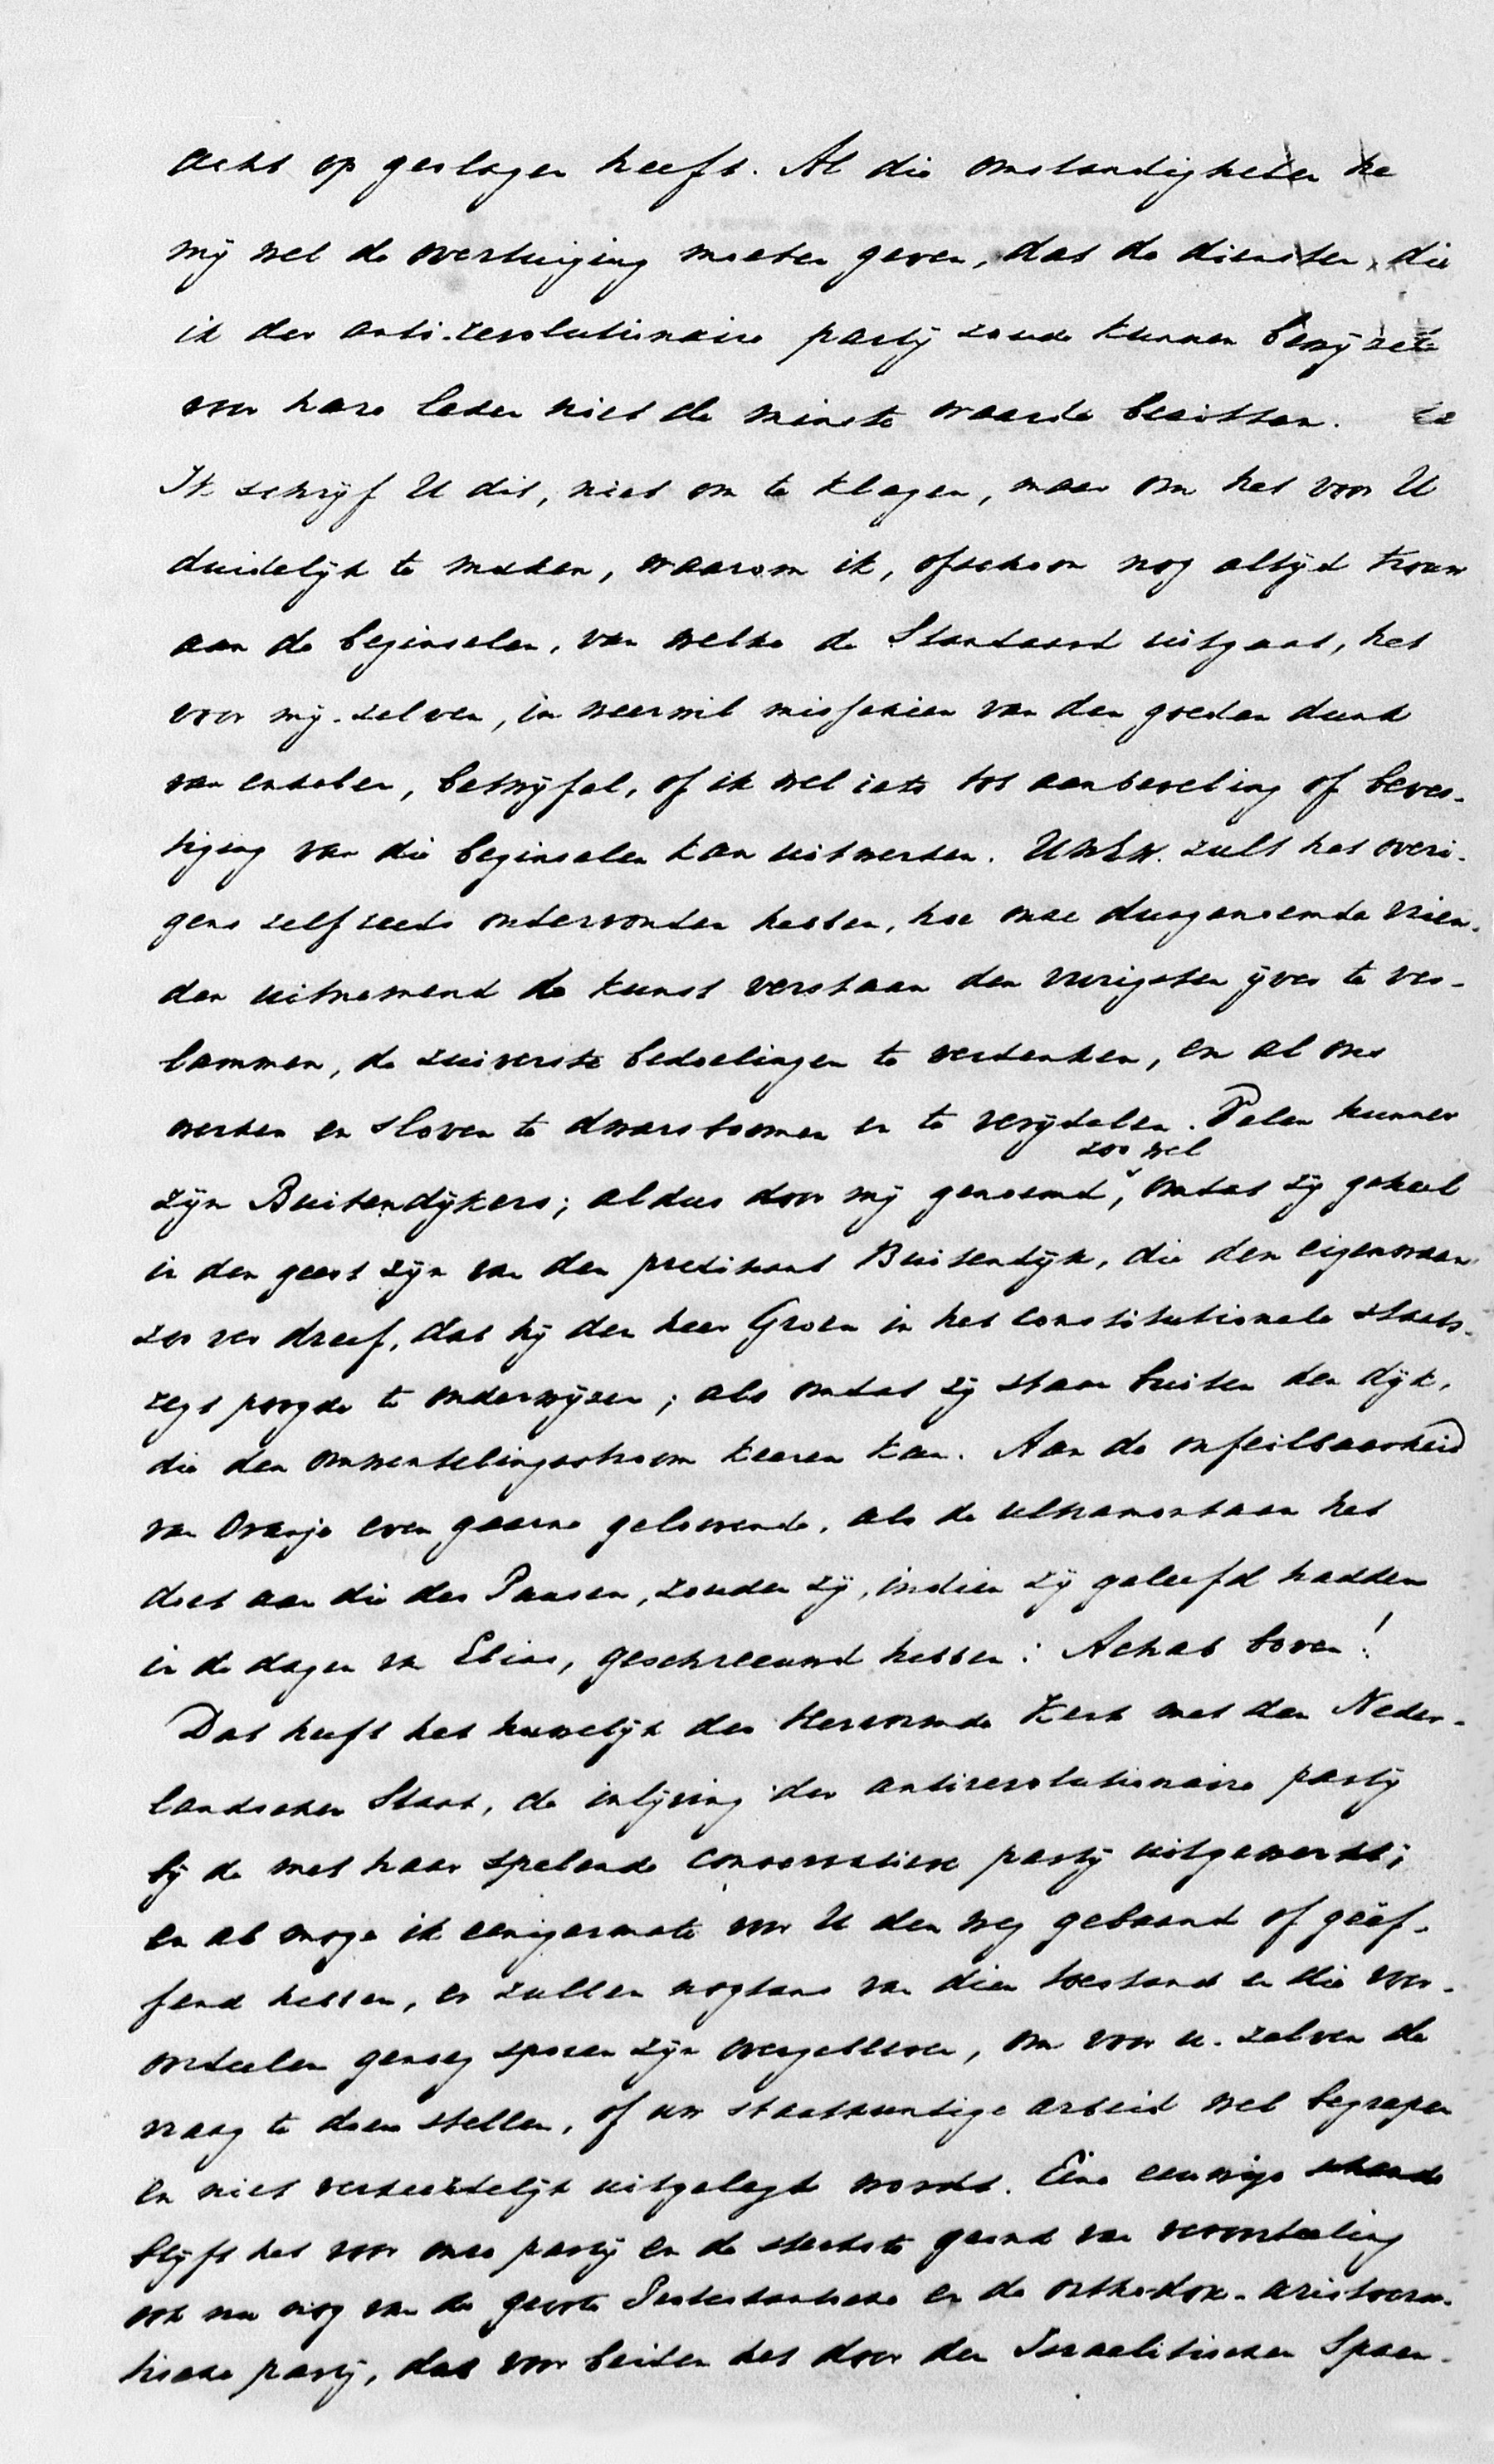 acht op geslagen heeft. Al die omstandigheden he
mij wel de overtuiging moeten geven, dat de diensten, die
ik der anti-revolutionaire partij zoude kunnen bewijzen
voor hare leden niet de minste waarde bezitten.
Ik schrijf U dit, niet om te klagen, maar om het voor U
duidelijk te maken, waarom ik, ofschoon nog altijd trouw
aan de beginselen, van welke de Standaard uitgaat, het
voor mij-zelven, in weerwil misschien van den goeden dunk
van enkelen, betwijfel, of ik wel iets tot aanbeveling of beves-
tiging van die beginselen kan uitwerken. UWEW. zult het overi-
gens zelf reeds ondervonden hebben, hoe onze dusgenoemde vrien-
den uitnemend de kunst verstaan den vurigsten ijver te ver-
lammen, de zuiverste bedoelingen te verdenken, en al ons
werken en sloven te dwarsboomen en te verijdelen. Velen hunner
zijn Buitendijkers; aldus door mij genoemd, zoo wel omdat zij geheel
in den geest zijn van den predikant Buitendijk, die den eigenwaan
zoo ver dreef, dat hij den heer Groen in het constitutionele staats-
regt poogde te onderwijzen; als omdat zij staan buiten den dijk,
die den omwentelingsstroom keeren kan. Aan de onfeilbaarheid
van Oranje even gaarne geloovende, als de ultramontaan het
doet aan die des Pausen, zouden zij, indien zij geleefd hadden
in de dagen van Elias, geschreeuwd hebben: Achab boven!
Dat heeft het huwelijk der Hervormde Kerk met den Neder-
landschen Staat, de inlijving der antirevolutionaire partij
bij de met haar spelende conservatieve partij uitgewerkt;
en al moge ik eenigermate voor U den weg gebaand of geëf-
fend hebben, er zullen nogtans van dien toestand en die voor-
oordeelen genoeg sporen zijn overgebleven, om voor u-zelven de
vraag te doen stellen, of uw staatkundige arbeid wel begrepen
en niet verkeerdelijk uitgelegd wordt. Eene eeuwige schande
blijft het voor onze partij en de sterkste grond van veroordeeling
ook nu nog van de groote Protestantsche en de orthodox-aristocra-
tische partij, dat voor beiden het door den Israelitischen Spaan-